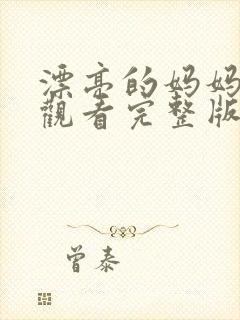 漂亮的妈妈
觀看完整版
曾泰